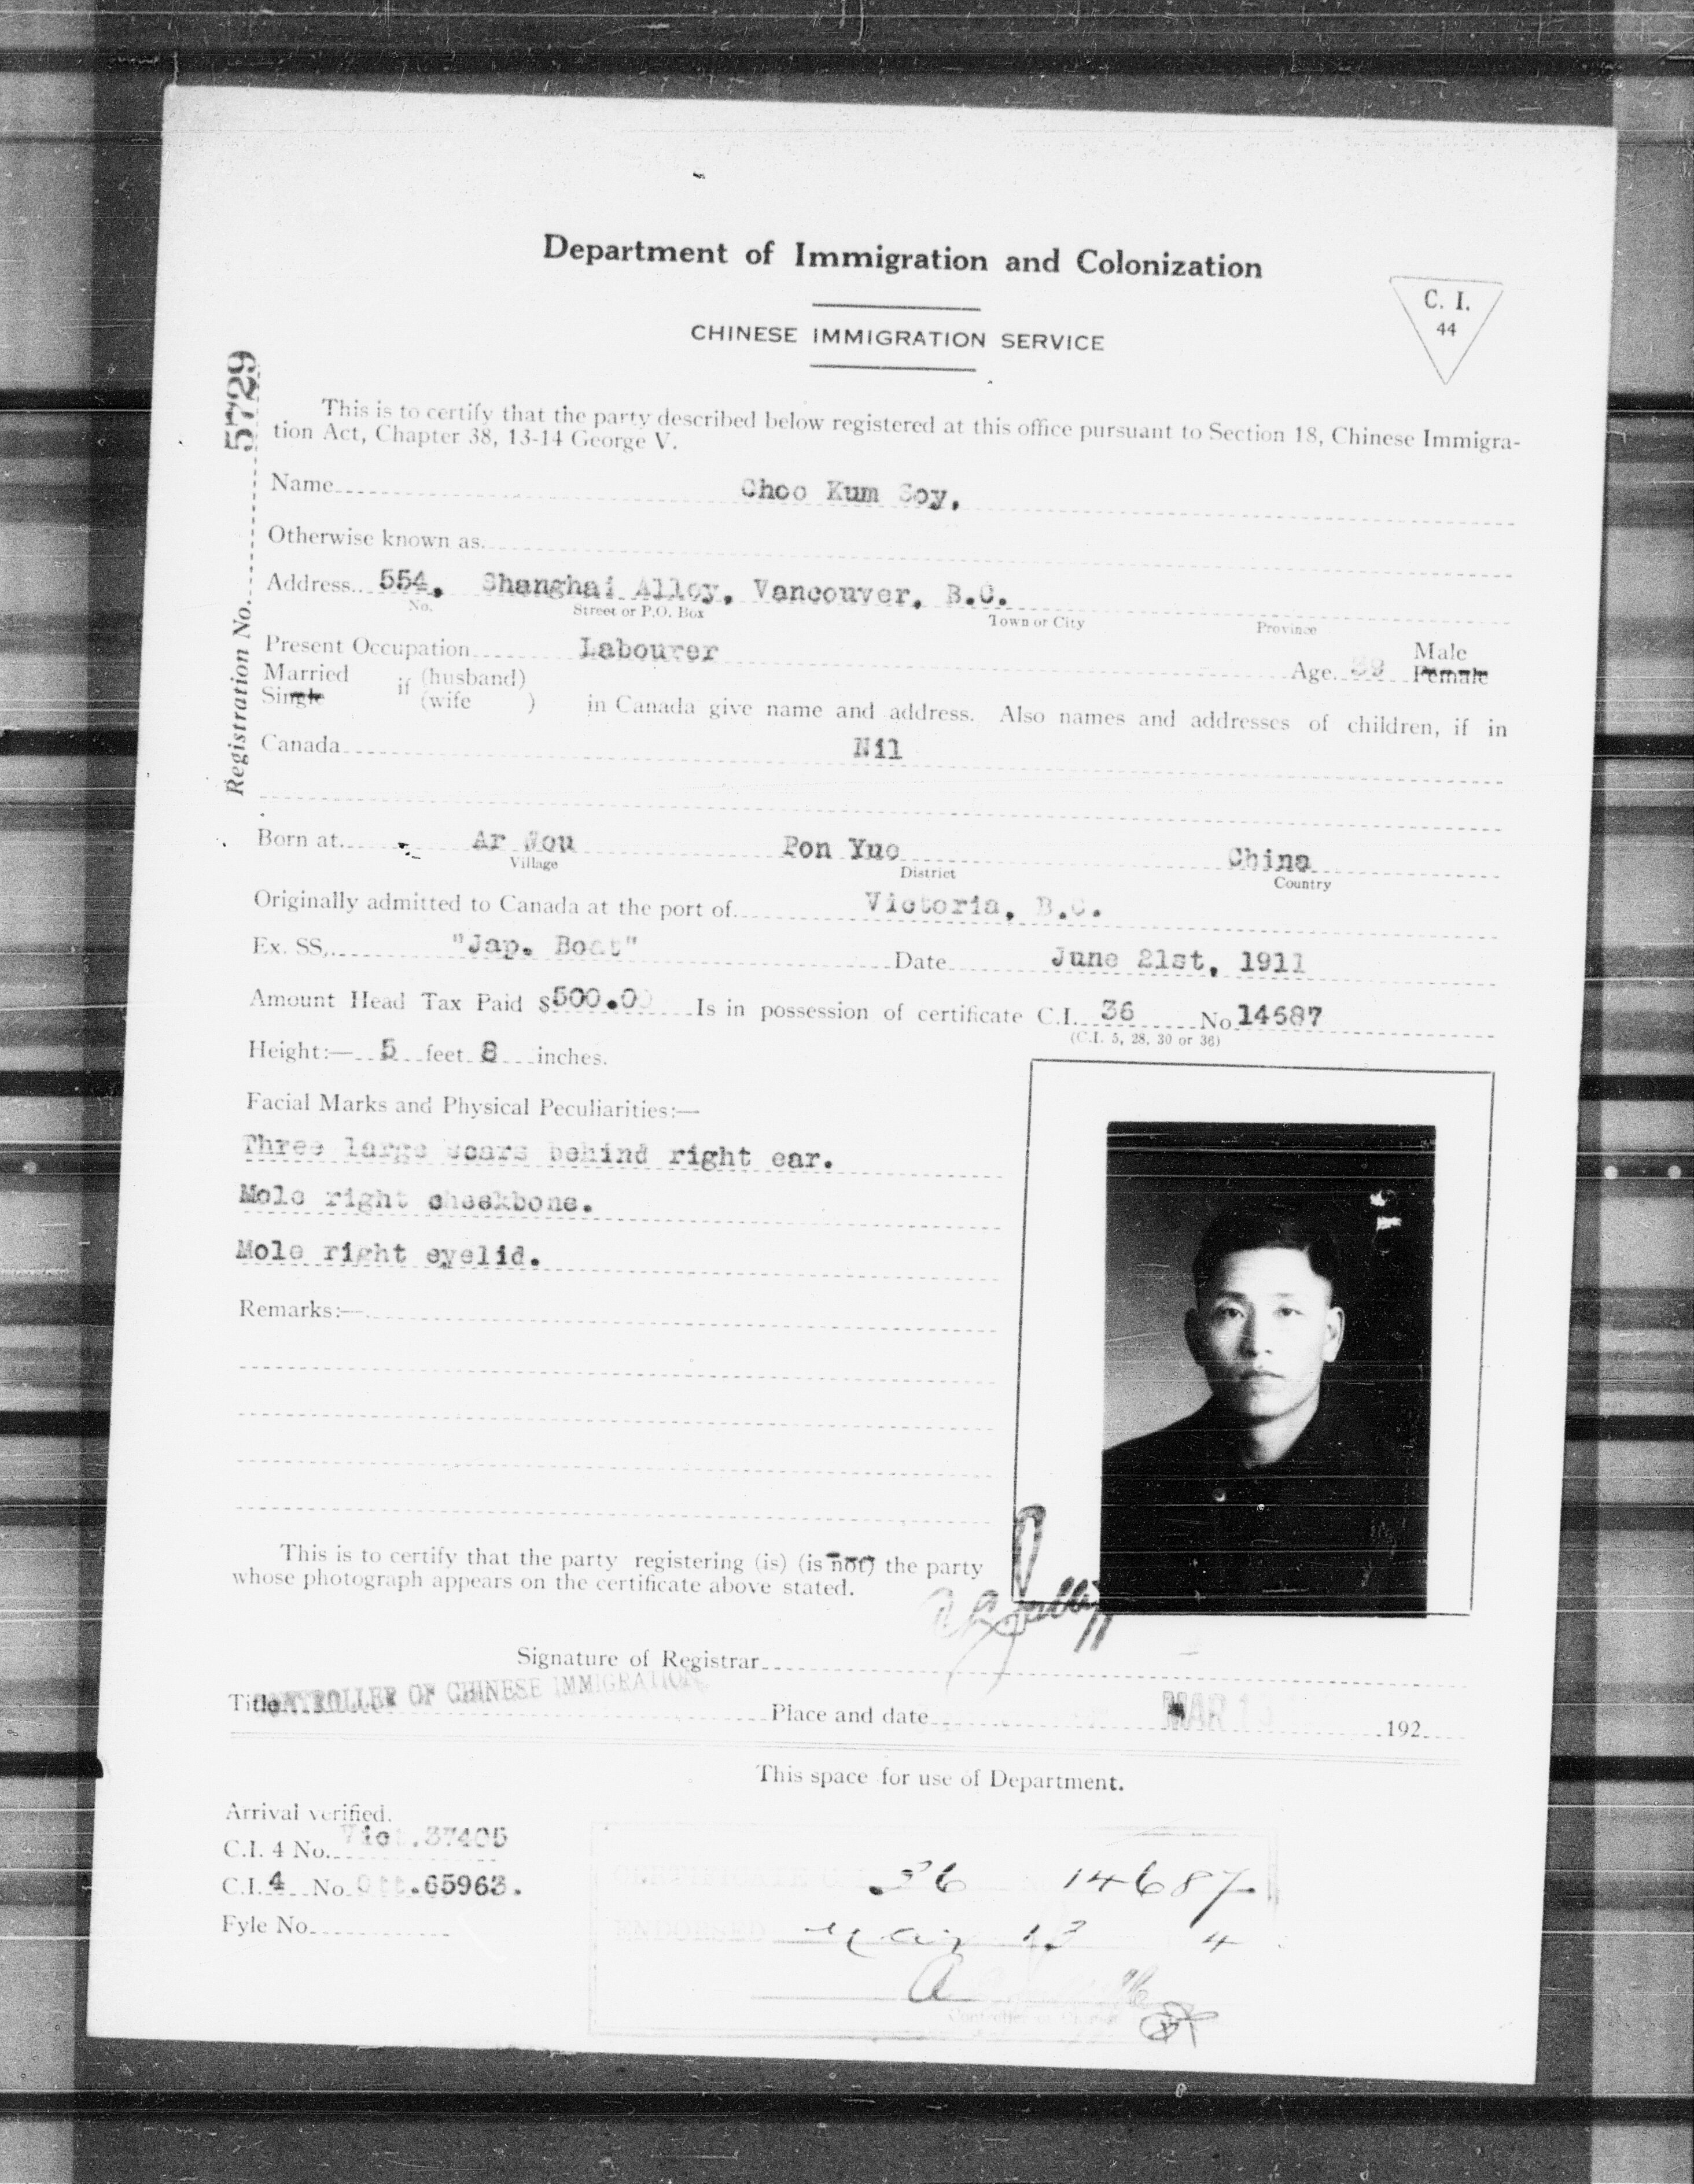 Department of Immigration and Colonization
C. I.
44
CHINESE IMMIGRATION SERVICE
Registration No. 5729
This is to certify that the party described below registered at this office pursuant to Section 18, Chinese Immigra-
tion Act, Chapter 38, 13-14 George V.
Name Choo Kum Soy,
Otherwise known as
Address 554, Shanghai Alley, Vancouver, B.C.
No. Street or P.O. Box Town or City Province
Present Occupation Labourer Age 39 Male Female
Married
Single if (husband)
(wife ) in Canada give name and address. Also names and addresses of children, if in
Canada Nil
Born at Ar Wou Pon Yuo China
Village District Country
Originally admitted to Canada at the port of Victoria, B.C.
Ex. SS, "Jap. Boat" Date June 21st, 1911
Amount Head Tax Paid $500.00 Is in possession of certificate C.I. 36 No 14687
(C.I. 5, 28, 30 or 36)
Height:— 5 feet 8 inches.
Facial Marks and Physical Peculiarities:—
Three large scars behind right ear.
Mole right cheekbone.
Mole right eyelid.
Remarks:—
This is to certify that the party registering (is) (is not) the party
whose photograph appears on the certificate above stated.
Signature of Registrar
Title CONTROLLER OF CHINESE IMMIGRATION Place and date MAR 13 192
This space for use of Department.
Arrival verified.
C.I. 4 No. Vic.37405
C.I. 4 No. Ott.65963.
Fyle No.
CERTIFICATE C.I. 36 14687
ENDORSED Mar 13 4